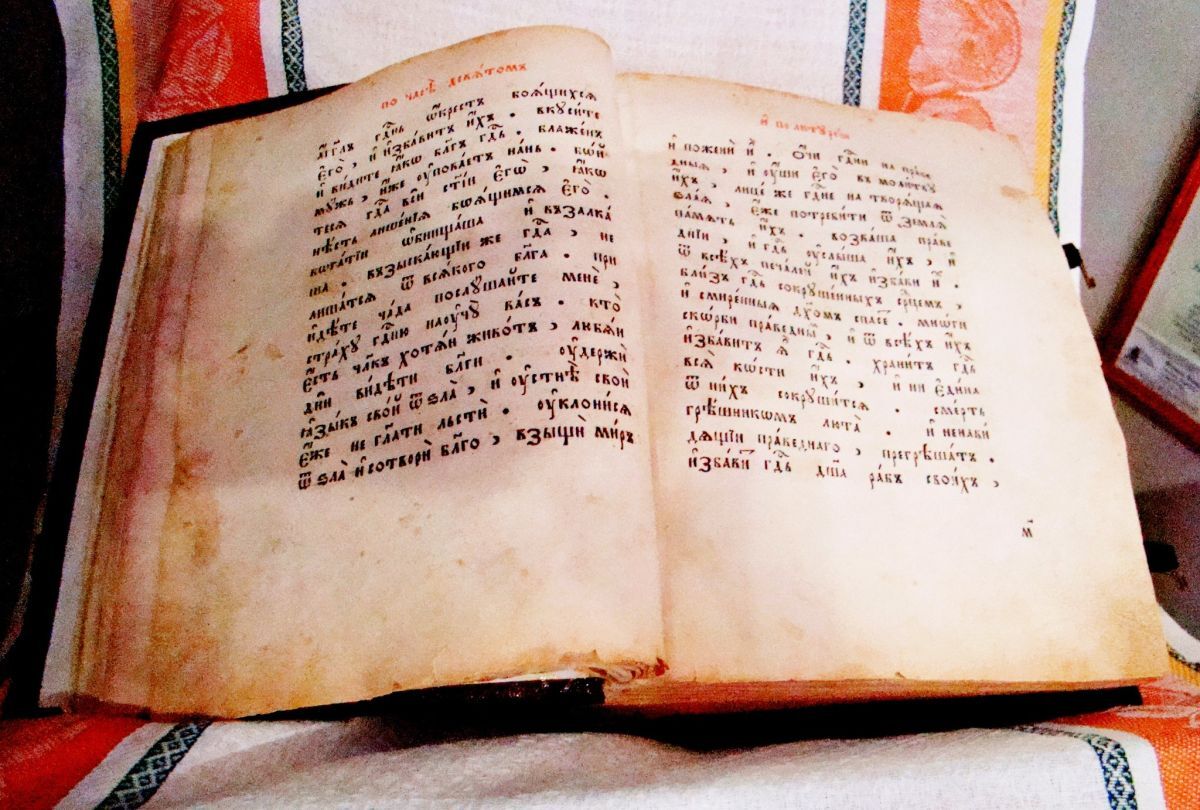 по часѣ́ девѧ́томъ
а҆́гг҃лъ гд҇нь ѡ҆́крестъ боѧ́щихсѧ
є҆гѡ̀ , и҆ и҆зба́витъ и҆̀хъ . вкуси́те
и҆ ви́дите ꙗ҆́кѡ бл҃гъ гд҇ь . блаже́нъ
мꙋ́жъ , и҆́же ᲂу҆пова́етъ на́нь . бо́й
тесѧ гд҇а всѝ ст҃і́и є҆гѡ̀ , ꙗ҆́кѡ
нѣ́сть лише́нїѧ боѧ́щимсѧ є҆гѡ̀ .
бога́тїи ѡ҆бнища́ша и҆ възалка́
ша . възыска́ющїи же гд҇а , не
лиша́тсѧ ѿ всѧ́кого бл҃га . прї
и҆дѣ́те ча́да послꙋ́шайте менѐ ,
стра́хꙋ гд҇ню наᲂучꙋ̀ ва́съ . кто̀
є҆́сть чл҃къ хотѧ́и живо́тъ , любѧ́и
дни̑ ви́дѣти бл҃ги . ᲂу҆держѝ
ꙗ҆зы́къ сво́й ѿ ѕла̀ , и҆ ᲂу҆стнѣ̀ своѝ
є҆́же не гл҃ати льстѝ . ᲂу҆клони́сѧ
ѿ ѕла̀ и҆ сотворѝ бл҃го , взыщѝ ми́ръ
и҆ по литꙋргі́и
и҆ поженѝ и҆̀ . ѻ҆́чи гд҇ни на пра́ве
дныѧ , и҆ ᲂу҆́ши є҆гѡ̀ въ моли́твꙋ
и҆́хъ , лице́ же гд҇не на творѧ́щаѧ
ѕла́ѧ , є҆́же потреби́ти ѿ землѧ̀
па́мѧть и҆́хъ . возва́ша пра́ве
днїи , и҆ гд҇ь ᲂу҆слы́ша и҆́хъ , и҆
ѿ всѣ́хъ печа́лей и҆́хъ и҆зба́ви и҆̀ .
бли́з гд҇ь сокрꙋше́нныхъ ср҇цемъ ,
и҆ смире́нныѧ дх҃омъ спасе́т . мнѡ́ги
ско́рби пра́веднымъ , и҆ ѿ всѣ́хъ и҆́хъ
и҆зба́витъ ѧ҆̀ гд҇ь . храни́тъ гд҇ь
всѧ̀ ко́сти и҆́хъ , и҆ ни є҆ди́на
ѿ ни́хъ сокрꙋши́тсѧ . сме́рть
грѣ́шникомъ люта̀ . и҆ ненави́
дѧщїи пра́веднаго , прегрѣша́тъ .
и҆зба́витъ гд҇ь дш҃а ра́бъ свои́хъ ,
м҃